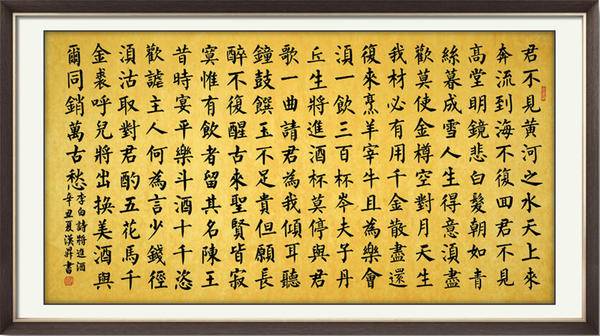 君不見黃河之水天上來
奔流到海不復回君不見
高堂明鏡悲白髮朝如青
絲暮成雪人生得意湏盡
歡莫使金樽空對月天生
我材必有用千金散盡還
復來烹羊宰牛且為樂會
湏一飲三百杯岑夫子丹
丘生將進酒杯莫停與君
歌一曲請君為我傾耳聽
鐘鼓饌玉不足貴但願長
醉不復醒古來聖賢皆寂
寞惟有飲者留其名陳王
昔時宴平樂斗酒十千恣
歡謔主人何為言少錢徑
湏沽取對君酌五花馬千
金裘呼兒將出換美酒與
爾同銷萬古愁
李白詩將進酒
辛丑夏漢昇書